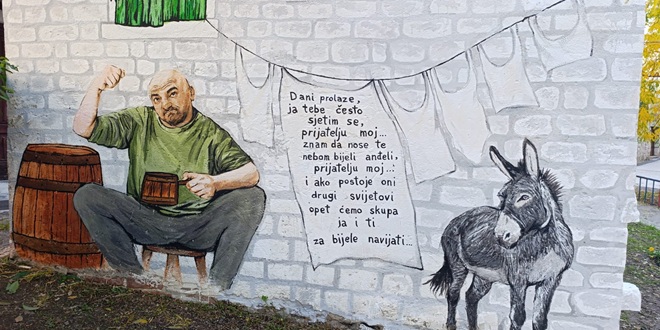 Dani prolaze,
ja tebe često
sjetim se,
prijatelju moj...
znam da nose te
nebom bijeli anđeli,
prijatelju moj...
i ako postoje oni
drugi svijetovi
opet ćemo skupa
ja i ti
za bijele navijati...